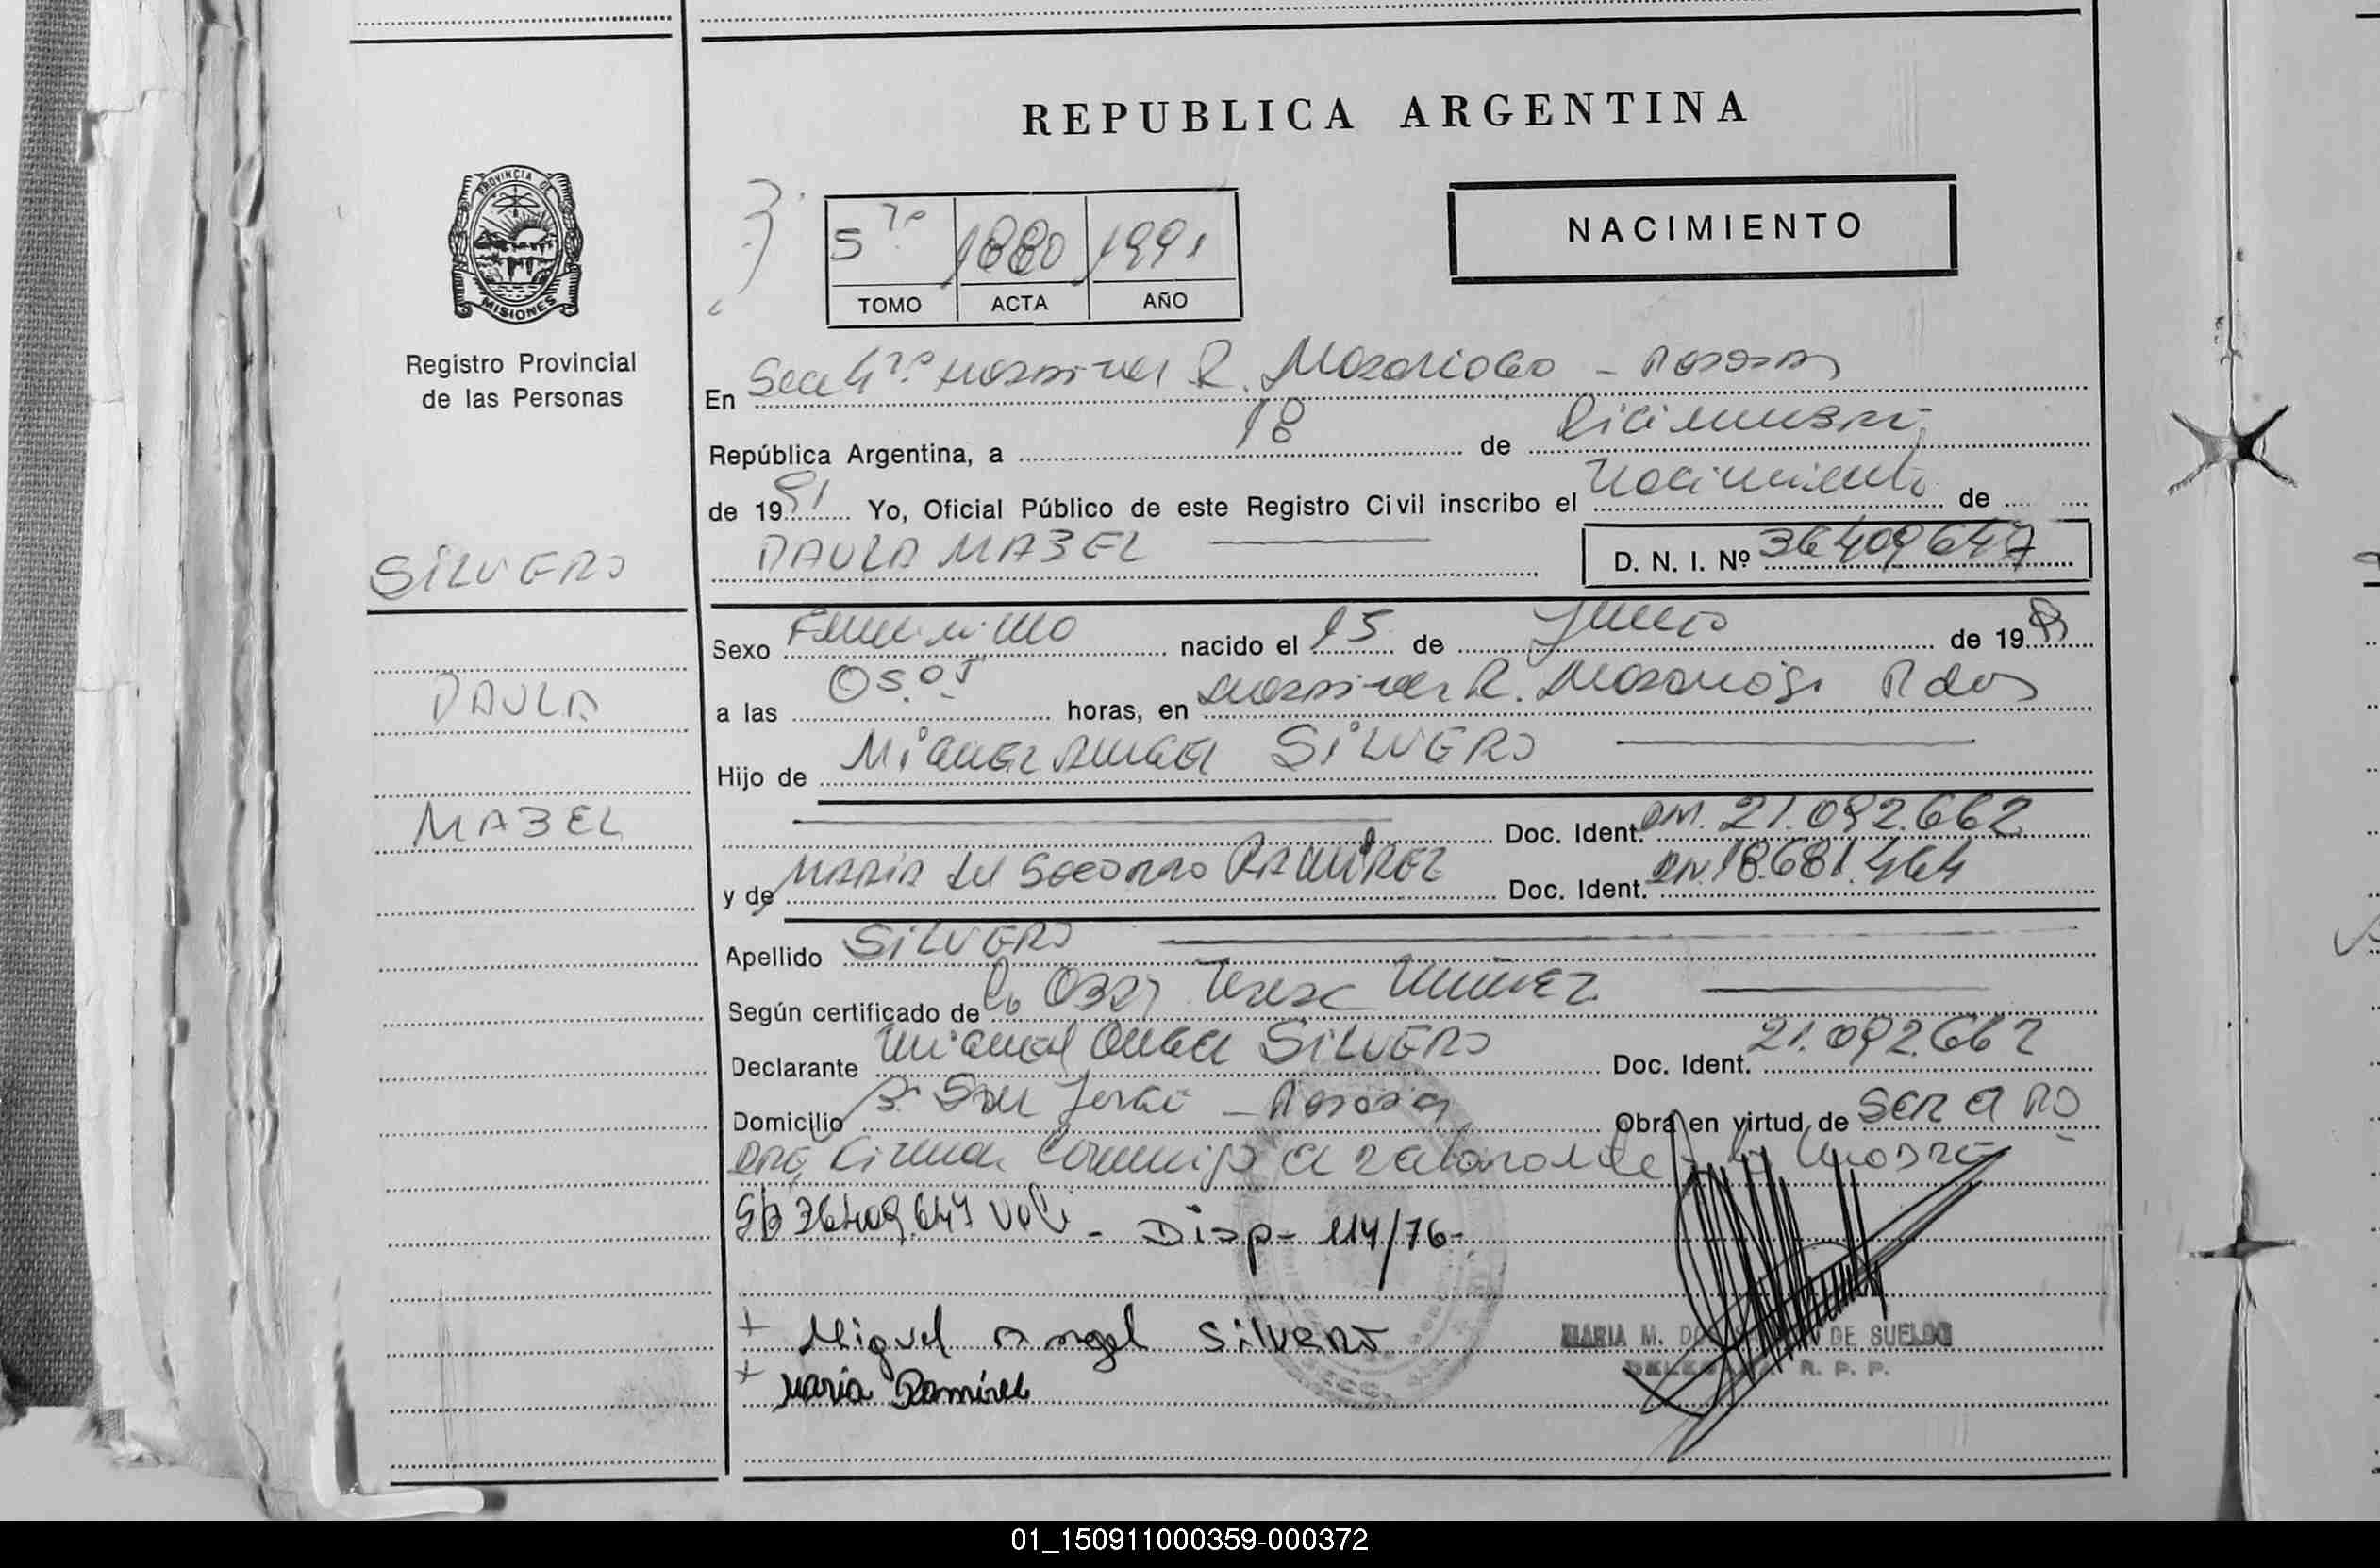 REPUBLICA ARGENTINA
PROVINCIA DE
MISIONES
Registro Provincial
de las Personas
5 1880 1991
TOMO ACTA AÑO
NACIMIENTO
En Secc 4 Hospital R. Madariaga - Posadas
República Argentina, a 18 de Diciembre
de 1991 Yo, Oficial Público de este Registro Civil inscribo el Nacimiento de
PAULA MABEL D. N. I. Nº 36409647
SILVERO
PAULA
MABEL
Sexo Femenino nacido el 15 de Junio de 19
a las 05.05 horas, en Hospital R. Madariaga Pdas
Hijo de Miguel Angel SILVERO
Doc. Ident. DNI. 21.092.662
y de MARIA del Socorro RAMIREZ Doc. Ident. DNI 18.681.464
Apellido SILVERO
Según certificado de la Obst Teresa Nuñez
Declarante Miguel Angel SILVERO Doc. Ident. 21.092.662
Domicilio Bº San Jorge - Posadas Obra en virtud de Ser el Pa
dre, firma conmigo el la Madre
36409.647 Vale - Disp - 114/76-
+ Miguel Angel Silvero
+ Maria Ramirez
MARIA M. DE SUELDO
R. P. P.
01_150911000359-000372